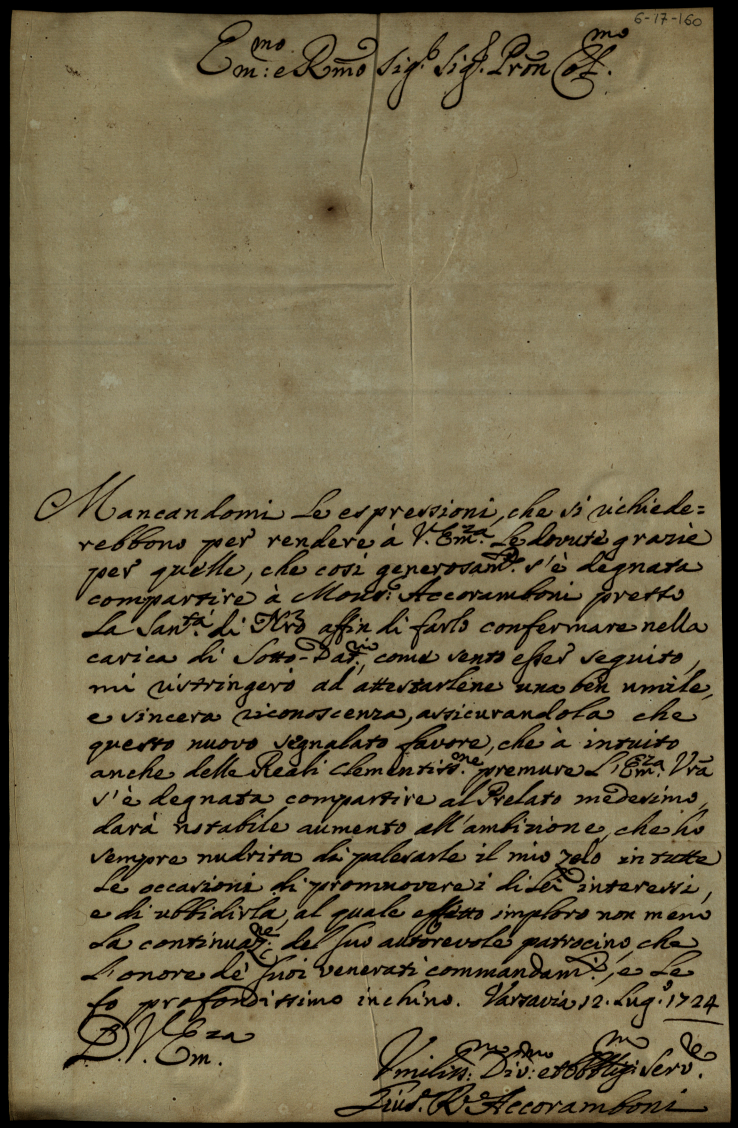 6-17-160
Em.mo e R.mo Sig.r Sig.r Pron Col.mo
Mancandomi le espressioni, che si richiede=
rebbono per rendere à V. Em.za le dovute grazie
per quelle, che così generosam.te s'è degnata
compartire à Mons.r Accoramboni presso
la San.tà di Nro affin di farlo confermare nella
carica di Sotto-Dat.rio, come sento esser seguito,
mi ristringerò ad attestarlene una ben umile,
e sincera riconoscenza, assicurandola che
questo nuovo segnalato favore, che à intuito
anche delle Reali clementiss.me premure l'Em.za Vrã
s'è degnata compartire al Prelato medesimo,
darà notabile aumento all'ambizione, che hò
sempre nudrita di palesarle il mio zelo in tutte
le occasioni di promuovere i di lei interessi,
e di ubbidirla, al quale effetto imploro non meno
la continuaz.ne del suo autorevole patrocino, che
l'onore de' suoi venerati commandam.ti, e le
fo profondissimo inchino. Varsavia 12. Lug.o 1724
D. V. Em.za
Umiliss.mo Div.mo et Obblig.mo Serv.re
Accoramboni